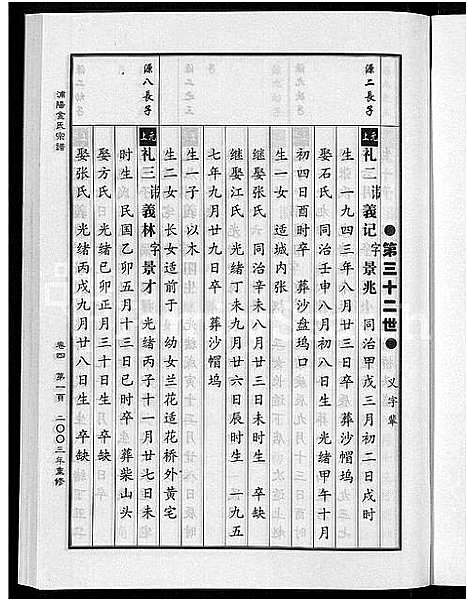 ●第三十二世● 义字辈
源二長子
上元 礼二讳義记字景兆 同治甲戌三月初二日戌时
生 一九四三年八月廿三日卒 葬沙帽坞
娶石氏 同治壬申八月初八日生 光绪甲午十月
初四日酉时卒 葬沙盘坞口
生一女 适城内张
继娶张氏 同治辛未八月廿三日未时生 卒缺
继娶江氏 光绪丁未九月廿六日辰时生 一九五
七年九月廿九日卒 葬沙帽坞
生一子 義以木
生二女 长女适前于 幼女兰花适花桥外黄宅
源八長子
上元 礼三讳義林字景才 光绪丙子十一月廿七日未
时生 民国乙卯五月十三日巳时卒 葬柴山头
娶方氏 光绪己卯正月三十日生 卒缺
娶张氏 光绪丙戌九月廿八日生 卒缺
浦陽金氏宗譜
卷四 第一頁 二〇〇三年重修